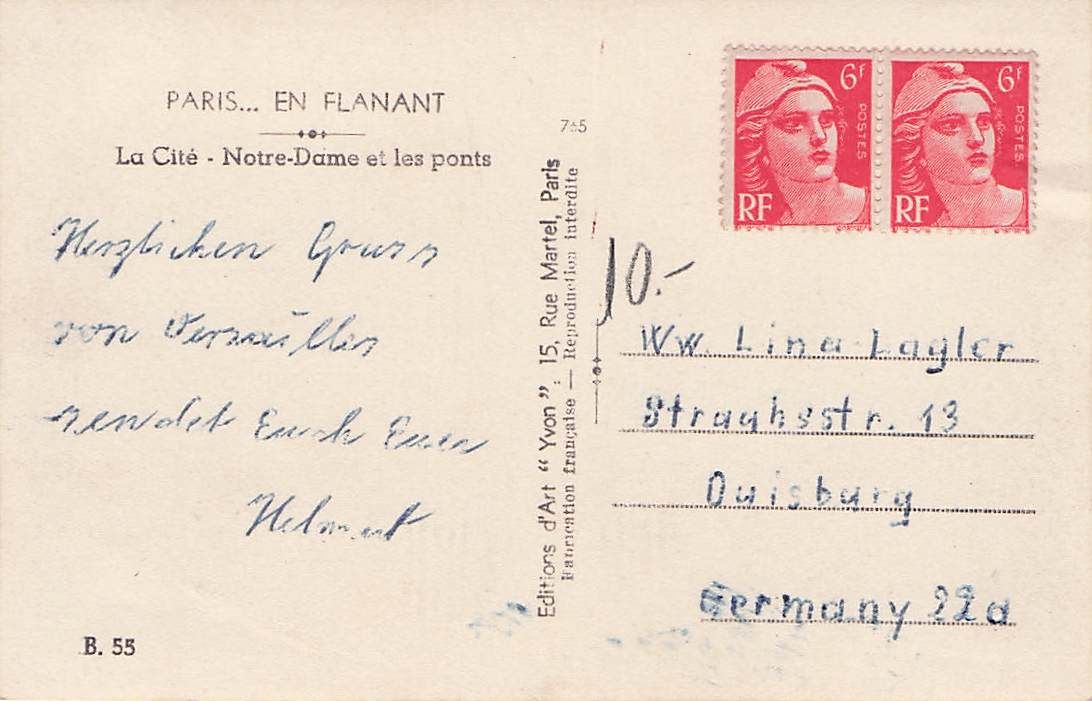 PARIS... EN FLANANT
La Cité - Notre-Dame et les ponts
Herzlichen Gruss
von Versailles
sendet Euch Euer
Helmut
B. 55
765
Editions d'Art “ Yvon ” : 15, Rue Martel, Paris
Fabrication française — Reproduction interdite
6F
POSTES
RF
6F
POSTES
RF
10.-
Ww. Lina Lagler
13
Duisburg
Germany 22a